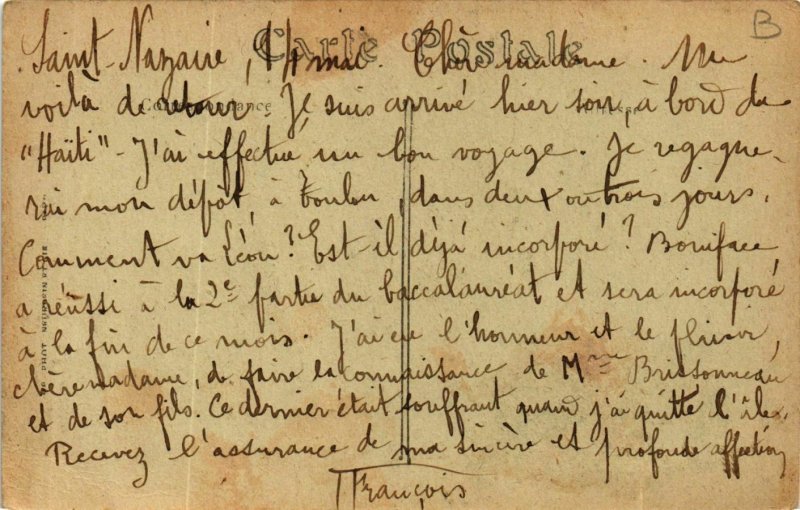 Carte Postale
B
Saint-Nazaire, 14 mai. Chère madame. Me
voilà de retour. Je suis arrivé hier soir, à bord du
"Haïti" - J'ai effectué un bon voyage. Je regagne-
rai mon dépôt, à Toulon, dans deux ou trois jours.
Comment va Léon? Est-il déjà incorporé? Boniface
a réussi à la 2e partie du baccalauréat et sera incorporé
à la fin de ce mois. J'ai eu l'honneur et le plaisir,
chère madame, de faire la connaissance de Mme Brissonneau
et de son fils. Ce dernier était souffrant quand j'ai quitté l'île.
Recevez l'assurance de ma sincère et profonde affection,
François